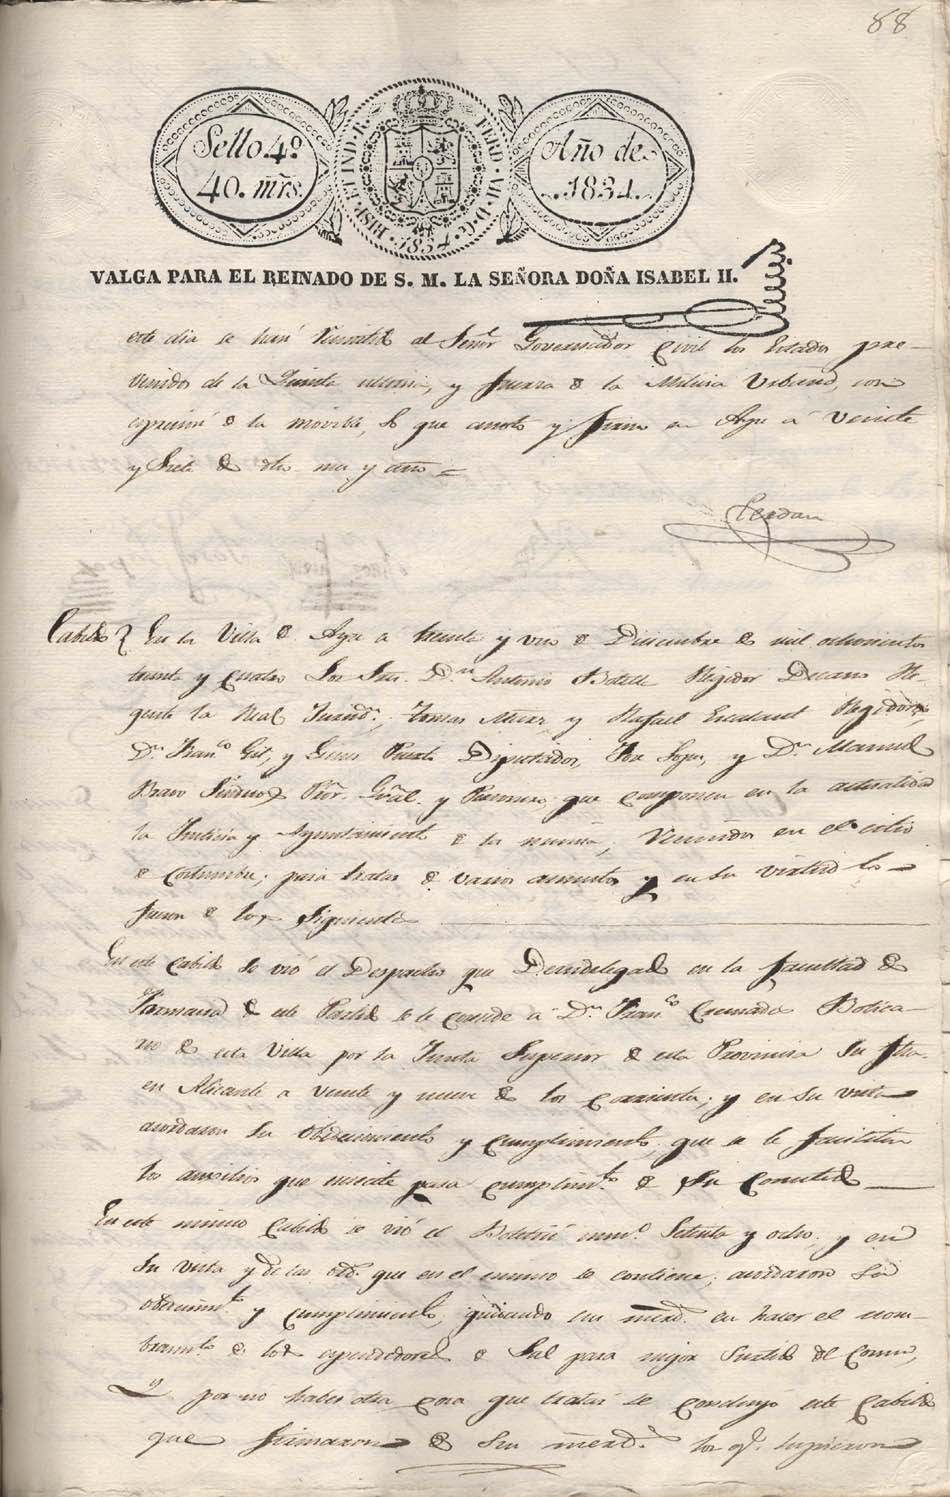 88
Sello 4º
40. mrs.
HISP. ET IND. R. FERD. VII. D. G. 1834
Año de
1834.
VALGA PARA EL REINADO DE S. M. LA SEÑORA DOÑA ISABEL II.
este dia se han al Señr Governador Civil los Estados pre-
venidos de la Quinta y fuerza de la Milicia Urbana, con
de la movible, lo que anoto y firmo en Aspe á Veinte
y Siete de dho mes y año =
Cerdan
Cabildo En la Villa de Aspe a treinta y uno de Diciembre de mil ochocientos
treinta y cuatro Los Srs. Dn. Antonio Botella Regidor Decano Re-
gente la Real Jurisdn., Tomas y Rafael Regidores,
Dn. Franco Gil, y Diputados, y Dn. Manuel
Bravo Sindico Pror. Gral. y Personero que componen en la actualidad
la Justicia y Ayuntamiento de la misma, Reunidos en el sitio
de costumbre, para tratar de varios asuntos y en su virtud lo
fueron de los Siguientes
En este Cabildo se vió el Despacho que Desudelegado en la facultad de
Farmacia de este Partido se le concede a Dn. Franco Cremades Botica-
rio de esta Villa por la Junta Superior de esta Provincia Su fha
en Alicante a veinte y nueve de los corrientes; y en su vista
acordaron su obedecimiento y cumplimiento, que se le faciliten
los auxilios que necesite para cumplimto. de Su Cometido
En este mismo Cabildo se vió el Boletin numo. Setenta y ocho, y en
Su vista y de las ords. que en el mismo se contiene, acordaron Su
obedecimto. y cumplimiento, sus mercds. en hacer el nom-
bramto. de los espendedores de Sal para mejor Surtido del Comun,
Y por no haber otra cosa que tratar se concluyo este Cabildo
que firmaron de Sus mercds. los qe. supieron